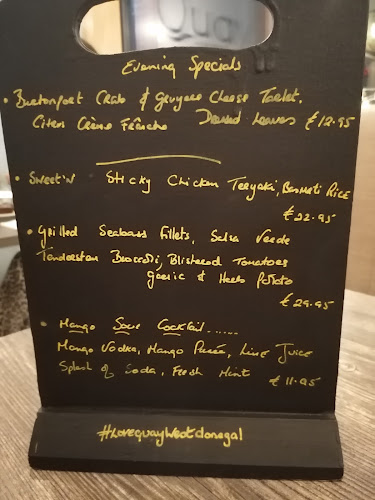 Qua
Evening Specials
• Burtonport Crab & gruyere Cheese Tartlet,
Citrus Crème Fraîche Dressed Leaves €12.95
• Sweet 'N Sticky Chicken Teryaki, Basmati Rice
€22.95
• Grilled Seabass Fillets, Salsa Verde
Tenderstem Broccoli, Blistered Tomatoes
Garlic & Herb Potato
€29.95
• Mango Sour Cocktail......
Mango Vodka, Mango Purée, Lime Juice
Splash of Soda, Fresh Mint €11.95
#Lovequaywestdonegal